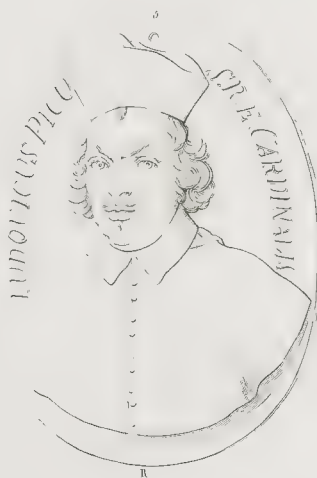 LUDOVICUS PICU
S.R.E. CARDINALIS